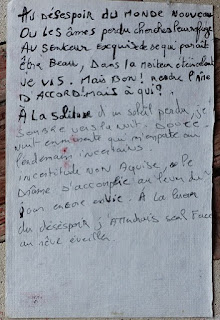 AU DÉSESPOIR DU MONDE NOUVEAU
OU LES ÂMES PERDU CHERCHES leur refuge
AU SENTEUR EXQUISE de ce qui paraît
être BEAU, DANS la
JE VIS. MAIS BON! rendre l'âme
D'ACCORD MAIS à QUI?
À LA Solitude d'un soleil perdu, je
SOMBRE vers la nuit. DOUCE
nuit qui m'
lendemain incertains.
incertitude NON AQUISE, le
DRAME S'ACCOMPLIE au lever du
jour encore À LA lueur
du désespoir j'Attendrais seul FACE
au rêve éveillé